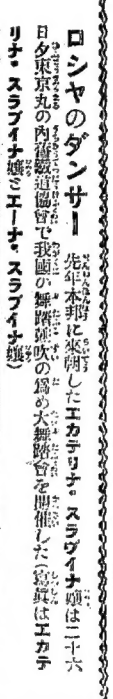 ロシヤのダンサー
先年本邦に來朝したエカテリナ。スラヴイナ孃は二十六
日夕東京丸の內舊鐵道協會で我國か舞踏鼓吹の爲め大舞踏會を開催した（寫眞はエカテ
リナ。スラブイナ孃とエーナ。スラブイナ孃）